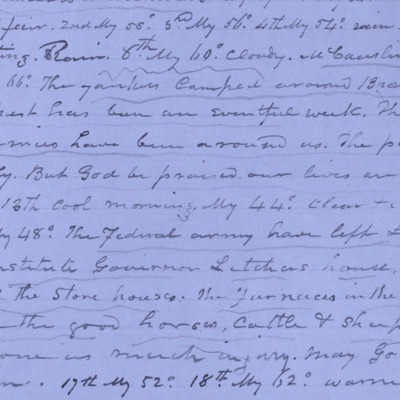 fair. 2nd My 58°. 3rd My 56°. 4th My 54°. rain
ting. Rain. 8th My 60°. Cloudy. McCausl
66°. The yankees Camped around Bro
est has been an eventful week. Th
rmies have been around us. The p
ly. But God be praised our lives are
13th cool morning. My 44°. Clear +
My 48°. The Federal army have left
nstitute Governor Letchers house,
the Store houses. The furnaces in the
the good horses, Cattle & Sheep
one us much injury. May Go
17th My 52°. 18th My 62°. warm